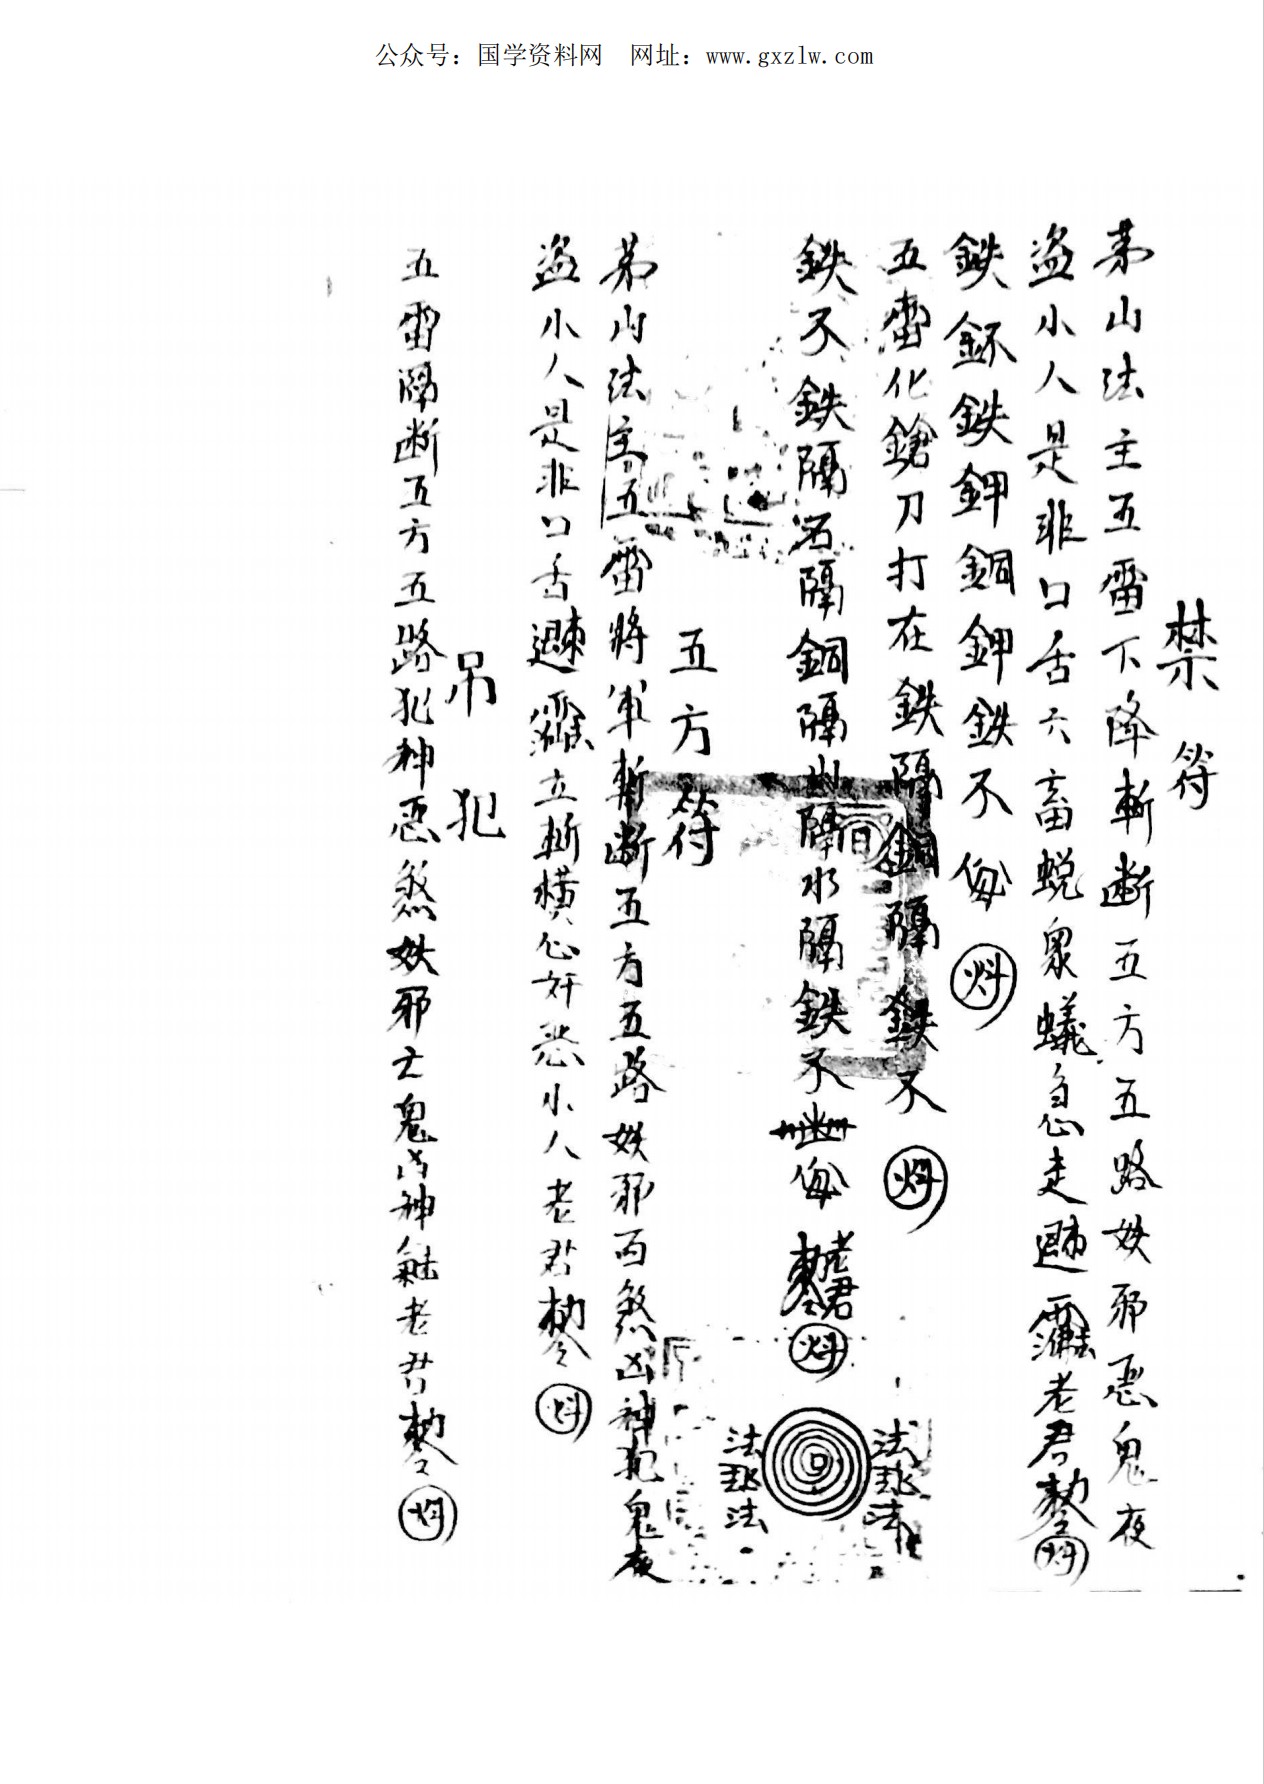 公众号：国学资料网　网址：www.gxzlw.com
禁符
茅山法主五雷下降斬断五方五路妖邪惡鬼夜
盗小人是非口舌六畜蜕衆蟻急走避老君勅令
鉄鉄鉀銅鉀鉄不
五雷化鎗刀打在鉄隔銅隔鉄不
鉄不鉄隔石隔銅隔山隔水隔鉄不老君勅令
法非法
法非法
五方符
茅山法主五雷將軍斬断五方五路妖邪百煞凶神犯鬼夜
盗小人是非口舌避立斬横心奸恶小人老君勅令
吊犯
五雷隔断五方五路犯神恶煞妖邪亡鬼凶神老君勅令